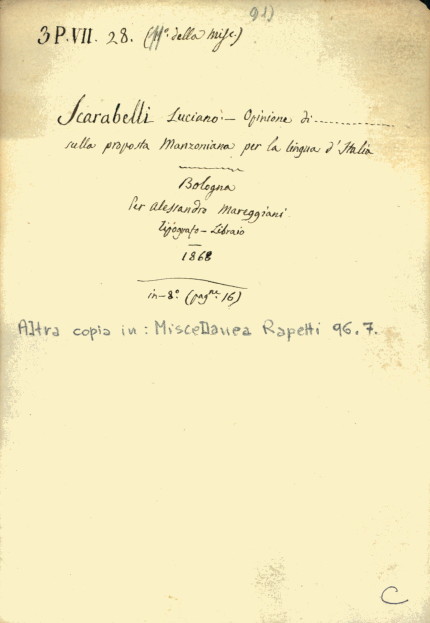 91)
3 P. VII. 28. (11° della Misc.)
Scarabelli Luciano:— Opinione di..................
sulla proposta Manzoniana per la lingua d'Italia
Bologna
Per Alessandro Mareggiani
tipografo-Libraio
1868
in-8.° (pag.ne 16)
Altra copia in: Miscellanea Rapetti 96.7.
C